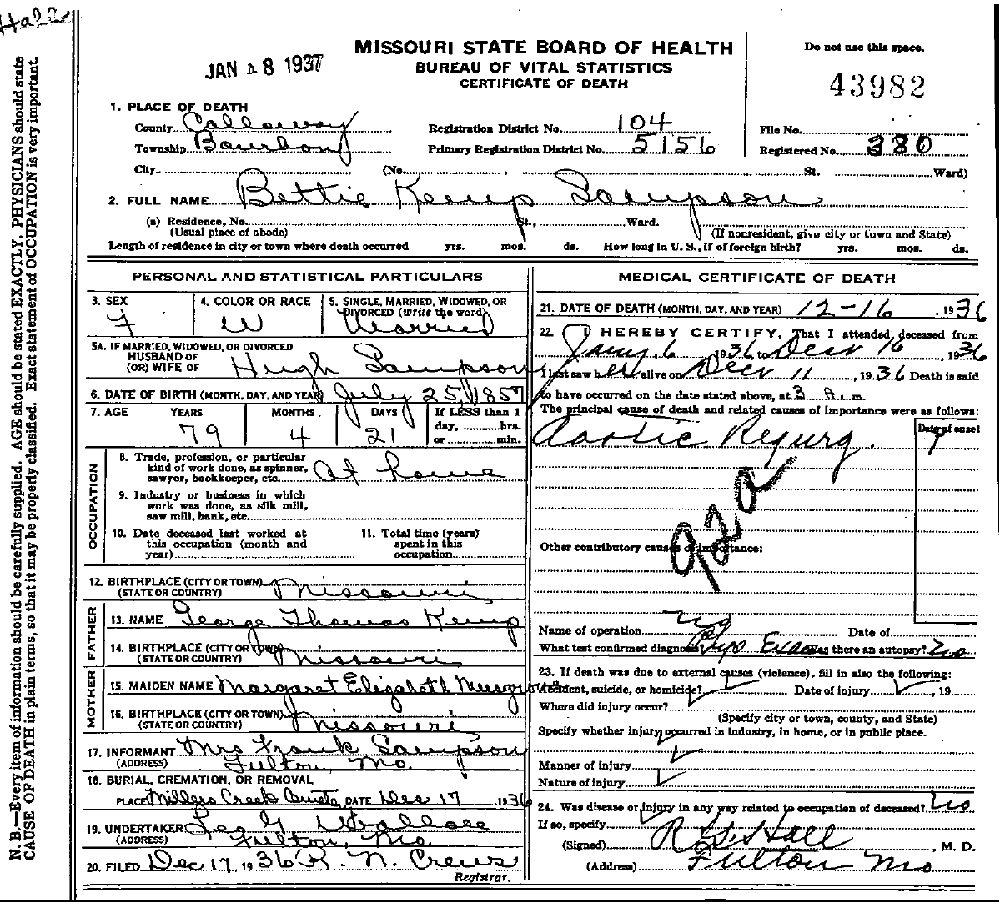 Hall
MISSOURI STATE BOARD OF HEALTH
BUREAU OF VITAL STATISTICS
CERTIFICATE OF DEATH
JAN 18 1937
Do not use this space.
43982
1. PLACE OF DEATH
County Callaway
Township Bourbon
City
(No. St. Ward)
Registration District No. 104
Primary Registration District No. 5156
File No.
Registered No. 380
2. FULL NAME Bettie Kemp Sampson
(a) Residence, No. St., Ward.
(Usual place of abode) (If nonresident, give city or town and State)
Length of residence in city or town where death occurred yrs. mos. ds. How long in U. S., if of foreign birth? yrs. mos. ds.
PERSONAL AND STATISTICAL PARTICULARS
3. SEX
F
4. COLOR OR RACE
W
5. SINGLE, MARRIED, WIDOWED, OR
DIVORCED (write the word)
Married
5A. IF MARRIED, WIDOWED, OR DIVORCED
HUSBAND OF
(OR) WIFE OF Hugh Sampson
6. DATE OF BIRTH (MONTH, DAY, AND YEAR) July 25, 1857
7. AGE YEARS MONTHS DAYS If LESS than 1
day, hrs.
or min.
79 4 21
OCCUPATION
8. Trade, profession, or particular
kind of work done, as spinner,
sawyer, bookkeeper, etc. At home
9. Industry or business in which
work was done, as silk mill,
saw mill, bank, etc.
10. Date deceased last worked at
this occupation (month and
year)
11. Total time (years)
spent in this
occupation
12. BIRTHPLACE (CITY OR TOWN)
(STATE OR COUNTRY) Missouri
FATHER
13. NAME George Thomas Kemp
14. BIRTHPLACE (CITY OR TOWN)
(STATE OR COUNTRY) Missouri
MOTHER
15. MAIDEN NAME Margaret Elizabeth
16. BIRTHPLACE (CITY OR TOWN)
(STATE OR COUNTRY) Missouri
17. INFORMANT Mrs Frank Sampson
(ADDRESS) Fulton, Mo.
18. BURIAL, CREMATION, OR REMOVAL
PLACE Millers Creek DATE Dec 17 1936
19. UNDERTAKER Wallace
(ADDRESS) Fulton, Mo.
20. FILED Dec 17, 1936 R. N. Crews
Registrar.
MEDICAL CERTIFICATE OF DEATH
21. DATE OF DEATH (MONTH, DAY, AND YEAR) 12-16 1936
22. I HEREBY CERTIFY, That I attended, deceased from
Jany 6 1936 to Decr 16, 1936
I last saw her alive on Decr 11, 1936 Death is said
to have occurred on the date stated above, at 3 A. m.
The principal cause of death and related causes of importance were as follows:
Date of onset
Aortic Regurg. ?
92a
Other contributory causes of importance:
Name of operation No Date of
What test confirmed diagnosis? Phys Exam Was there an autopsy? No
23. If death was due to external causes (violence), fill in also the following:
Accident, suicide, or homicide? Date of injury , 19
Where did injury occur?
(Specify city or town, county, and State)
Specify whether injury occurred in industry, in home, or in public place.
Manner of injury
Nature of injury
24. Was disease or injury in any way related to occupation of deceased? No
If so, specify
(Signed) Hall, M. D.
(Address) Fulton Mo
N. B.—Every item of information should be carefully supplied. AGE should be stated EXACTLY. PHYSICIANS should state
CAUSE OF DEATH in plain terms, so that it may be properly classified. Exact statement of OCCUPATION is very important.